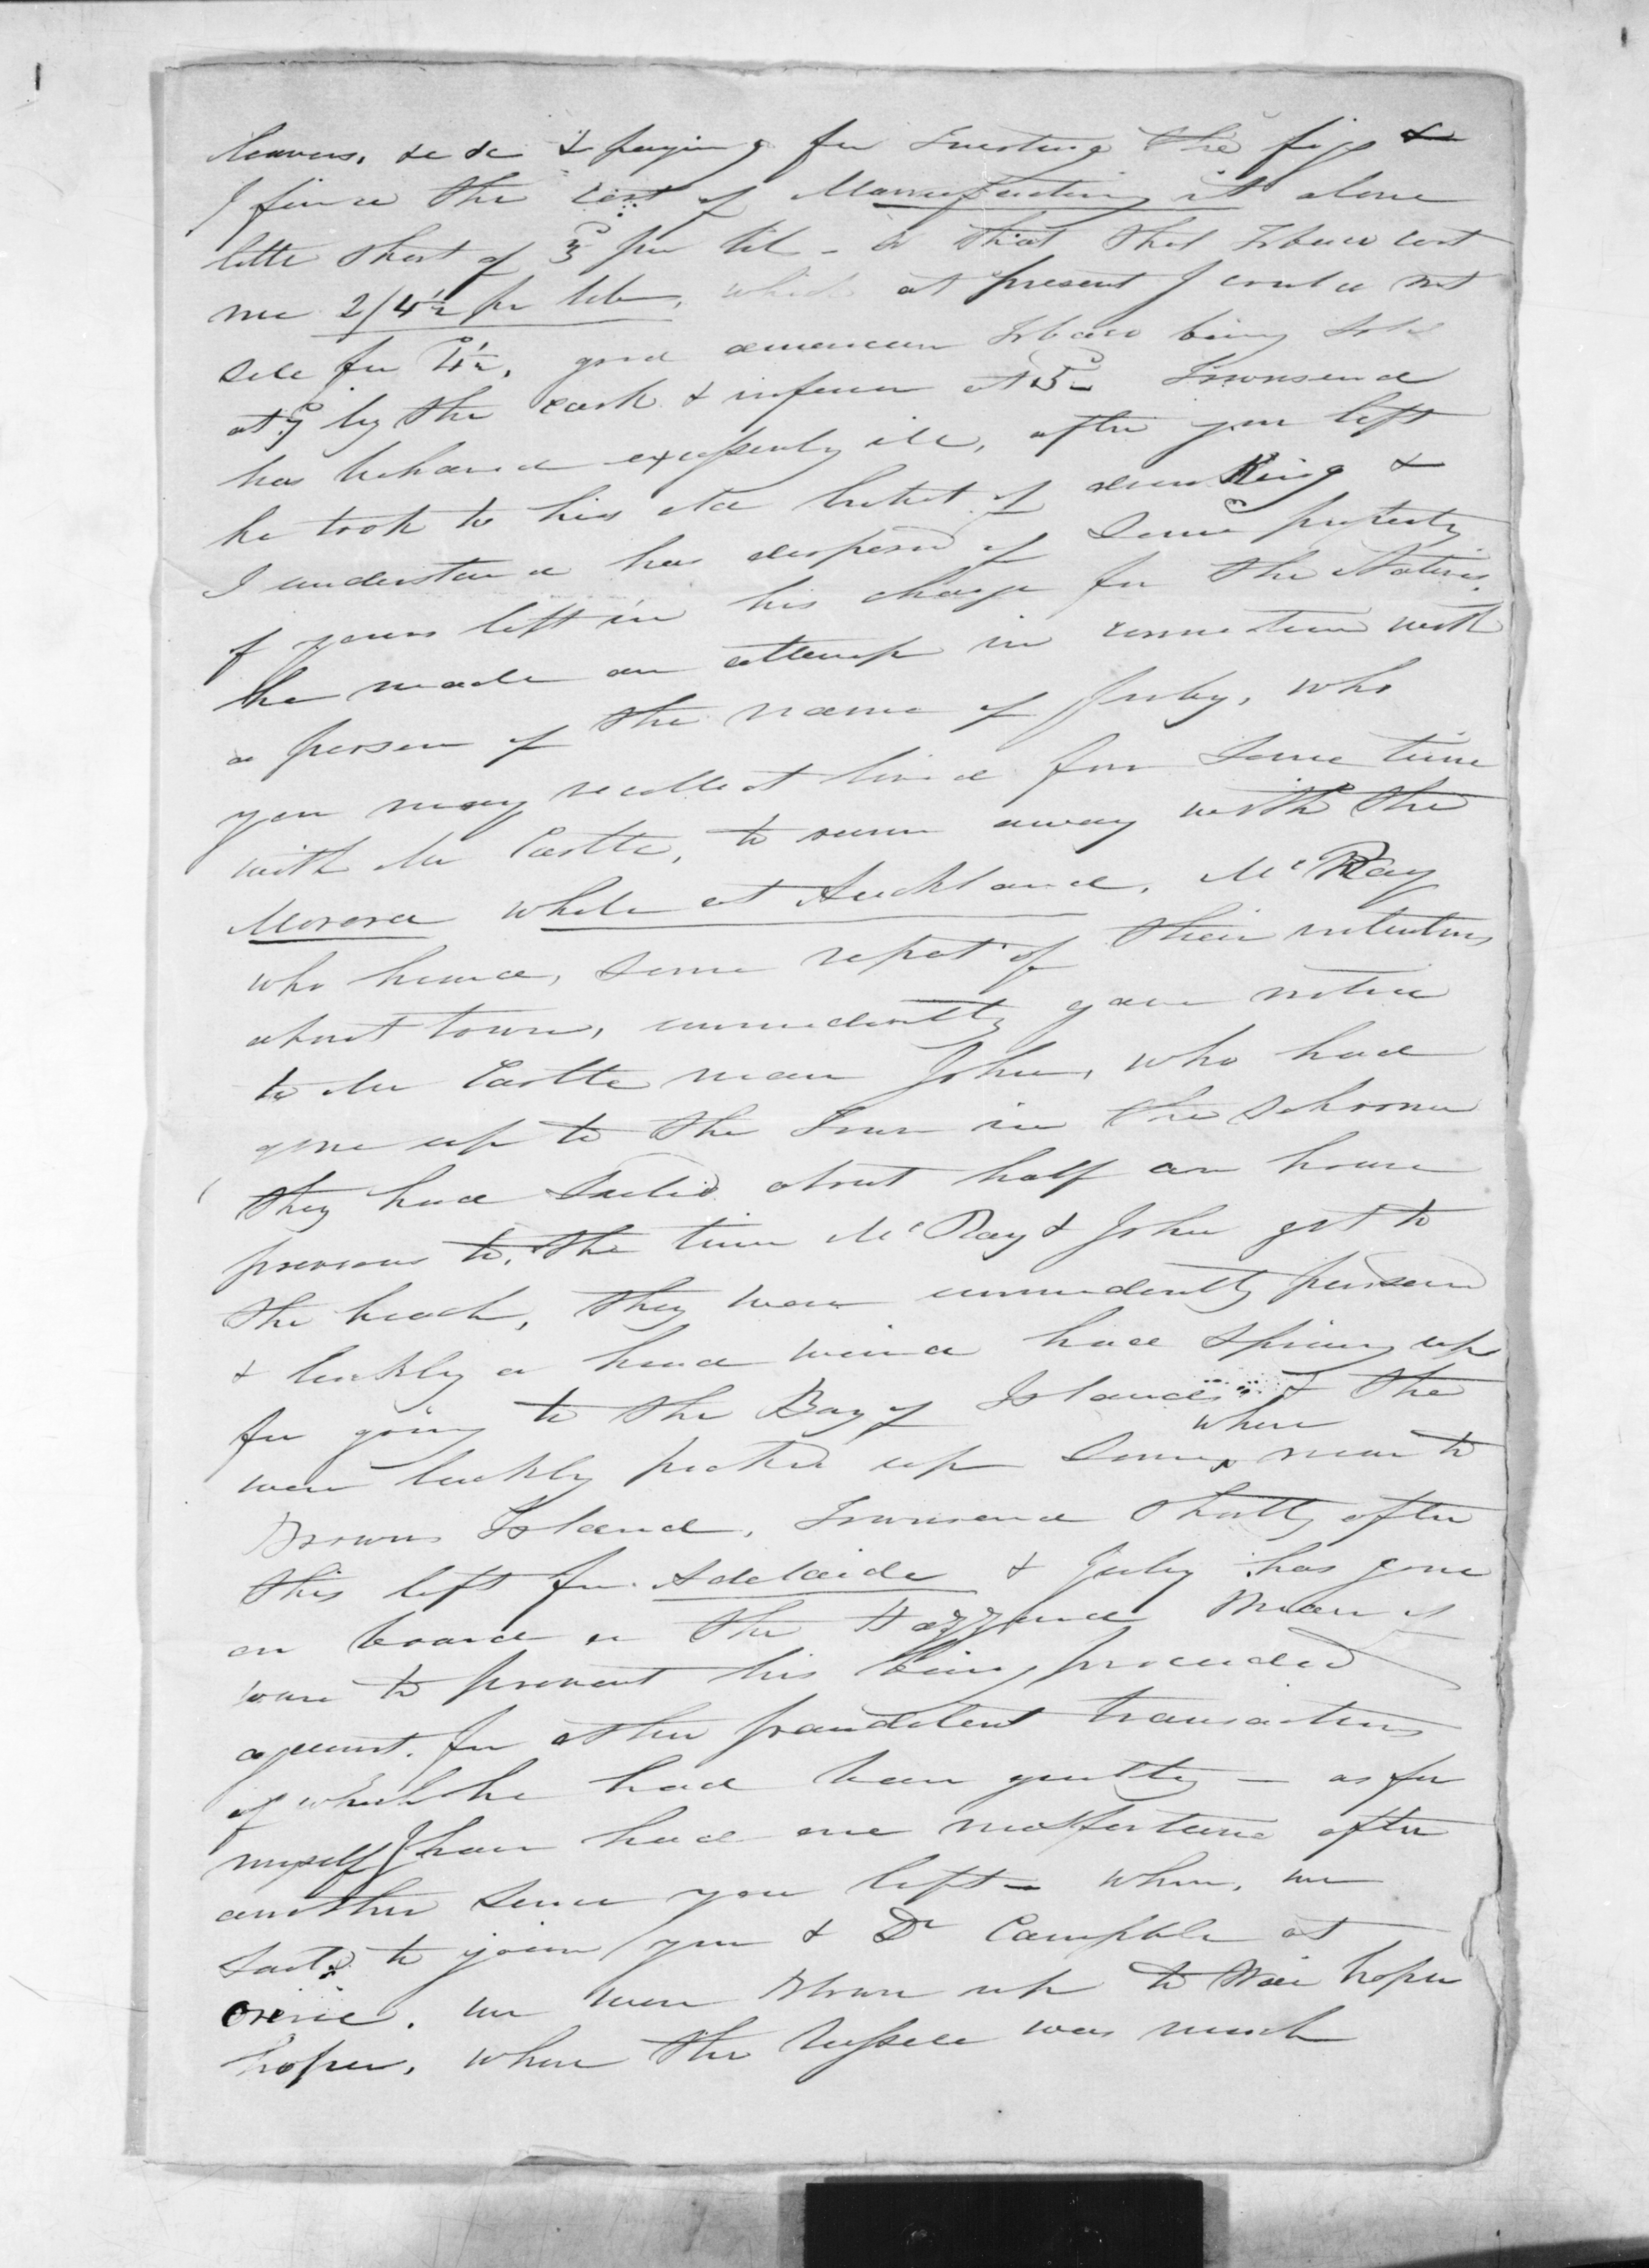 leaves, &c &c & paying for erecting the &
I find the cost of Manufacturing it alone
little short of 3 per lb - so that that Tobacco cost
me 2/4½ pr lb, which at present I could not
sell for 4½, good american Tobacco being sold
at 7 by the cask & inferior at 5 Townsend
has behaved excessively ill, after you left
he took to his old habit of drinking &
I understand has disposed of some property
of yours left in his charge for the Natives.
he made an attempt in connection with
a person of the name of Juby, who
you may recollect lived for some time
with Mr Earlle, to run away with the
while at Auckland, McRay
who heard, some repot of their intentions
about town, immediatly gave notice
to Mr Earlle man John, who had
gone up to the Town in the Schooner
they had Sailed about half an hour
previous to, the time McRay & John got to
the beach, they were immediatly persued
& luckly a head wind had sprung up
for going to the Bay of Islands & the
were luckly picked up some where near to
Browns Island, Townsend shortly after
this left for Adelaide & Juby has gone
on board the Man of
war to prevent his being proceeded
against for other fraudelent transactions
of which he had been guilty - as for
myself I have had one misfortune after
another since you left - when, we
Saild to join you & Dr Campble at
we were blown up to
where the Vessell was much